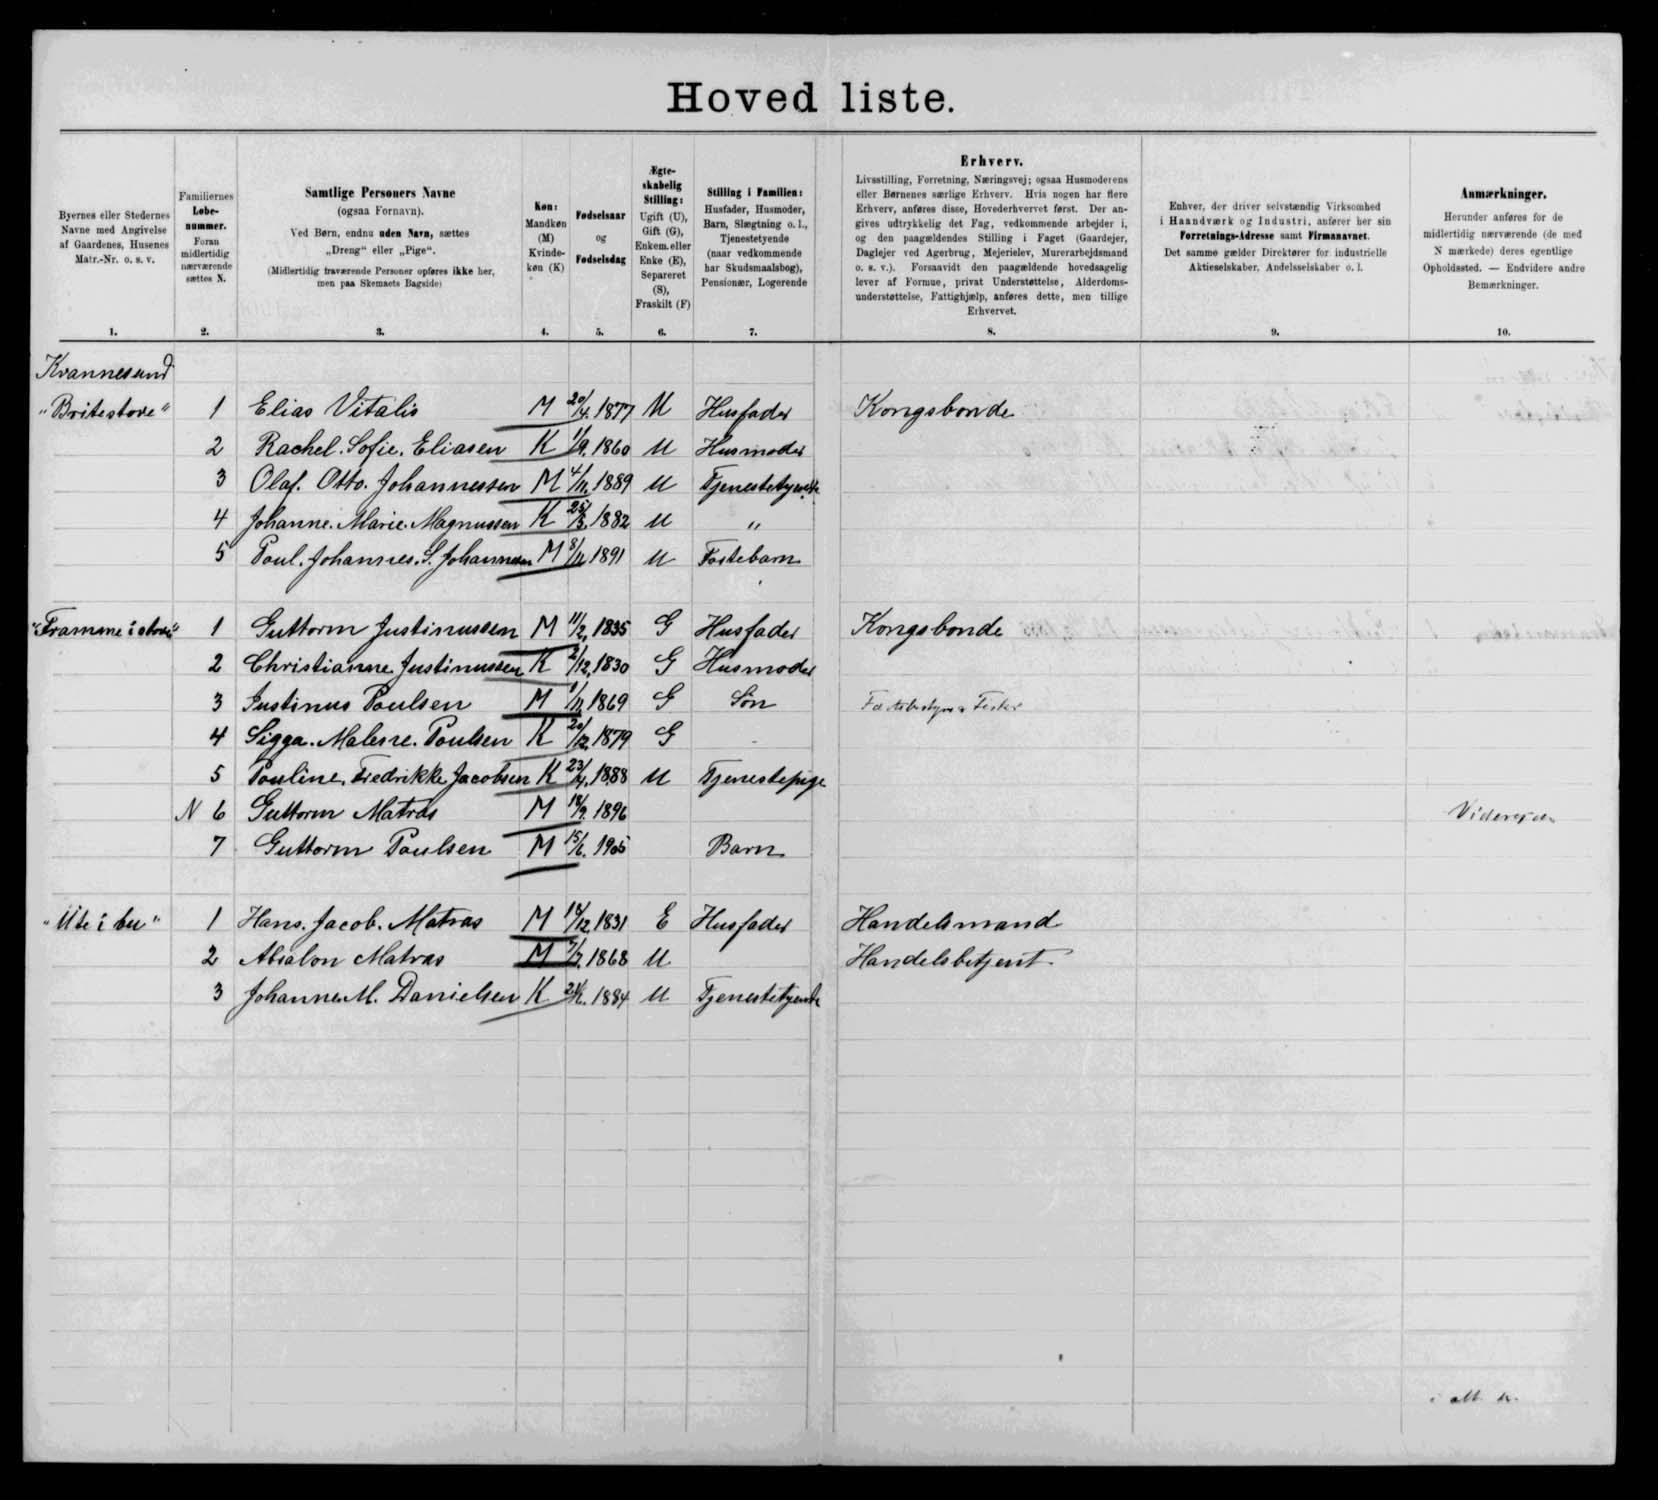 Hoved liste.
Byernes eller Stedernes
Navne med Angivelse
af Gaardenes, Husenes
Matr.-Nr. o. s. v.
1.
Familiernes
Løbe-
nummer.
Foran
midlertidig
nærværende
sættes N.
2.
Samtlige Personers Navne
(ogsaa Fornavn).
Ved Børn, endnu uden Navn, sættes
„Dreng“ eller „Pige“.
(Midlertidig fraværende Personer opføres ikke her,
men paa Skemaets Bagside)
3.
Køn:
Mandkøn
(M)
Kvinde-
køn (K)
4.
Fødselsaar
og
Fødselsdag
5.
Ægte-
skabelig
Stilling:
Ugift (U),
Gift (G),
Enkem. eller
Enke (E),
Separeret
(S),
Fraskilt (F)
6.
Stilling i Familien:
Husfader, Husmoder,
Barn, Slægtning o. l.,
Tjenestetyende
(naar vedkommende
har Skudsmaalsbog),
Pensionær, Logerende
7.
Erhverv.
Livsstilling, Forretning, Næringsvej; ogsaa Husmoderens
eller Børnenes særlige Erhverv. Hvis nogen har flere
Erhverv, anføres disse, Hovederhvervet først. Der an-
gives udtrykkelig det Fag, vedkommende arbejder i,
og den paagældendes Stilling i Faget (Gaardejer,
Daglejer ved Agerbrug, Mejerielev, Murerarbejdsmand
o. s. v.). Forsaavidt den paagældende hovedsagelig
lever af Formue, privat Understøttelse, Alderdoms-
understøttelse, Fattighjælp, anføres dette, men tillige
Erhvervet.
8.
Enhver, der driver selvstændig Virksomhed
i Haandværk og Industri, anfører her sin
Forretnings-Adresse samt Firmanavnet.
Det samme gælder Direktører for industrielle
Aktieselskaber, Andelsselskaber o. l.
9.
Anmærkninger.
Herunder anføres for de
midlertidig nærværende (de med
N mærkede) deres egentlige
Opholdssted. — Endvidere andre
Bemærkninger.
10.
Kvannesund
"Britestove" 1 Elias Vitalis M 20/4. 1877 U Husfader Kongsbonde
2 Rachel. Sofie. Eliasen K 1/9. 1860 U Husmoder
3 Olaf. Otto. Johannessen M 4/11. 1889 U Tjenestetyende
4 Johanne. Marie. Magnussen K 25/3. 1882 U "
5 Poul. Johannes. S. Johannesen M 8/11. 1891 U Fostebarn
"Framme i stove" 1 Guttorm Justinussen M 11/2. 1835 G Husfader Kongsbonde
2 Christianne Justinussen K 2/12. 1830 G Husmoder
3 Justinus Poulsen M 1/11. 1869 G Søn
4 Sigga. Malene. Poulsen K 20/12. 1879 G
5 Pouline. Fredrikke Jacobsen K 23/4. 1888 U Tjenestepige
N 6 Guttorm Matras M 18/9. 1896
7 Guttorm Poulsen M 15/6. 1905 Barn
"Ute i bu" 1 Hans. Jacob. Matras M 18/12. 1831 E Husfader Handelsmand
2 Absalon Matras M 7/7. 1868 U Handelsbetjent
3 Johanne M. Danielsen K 21/6. 1884 U Tjenestetyende